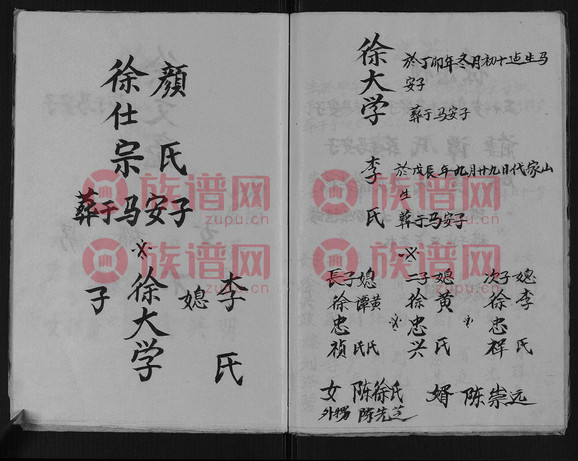 徐仕宗
顔氏
葬于马安子
※
子
徐大学
媳
李氏
徐大学
於丁卯年冬月初十
生马安子
葬于马安子
李氏
於戊辰年九月廿九日代家山
生
葬于马安子
※
長子徐忠禎
媳譚氏
黄氏
※
二子徐忠兴
媳黄氏
※
次子徐忠辉
媳李氏
女 陈徐氏
婿 陈崇远
外甥 陈先芝
族谱网
zupu.cn
族谱网
zupu.cn
族谱网
zupu.cn
族谱网
zupu.cn